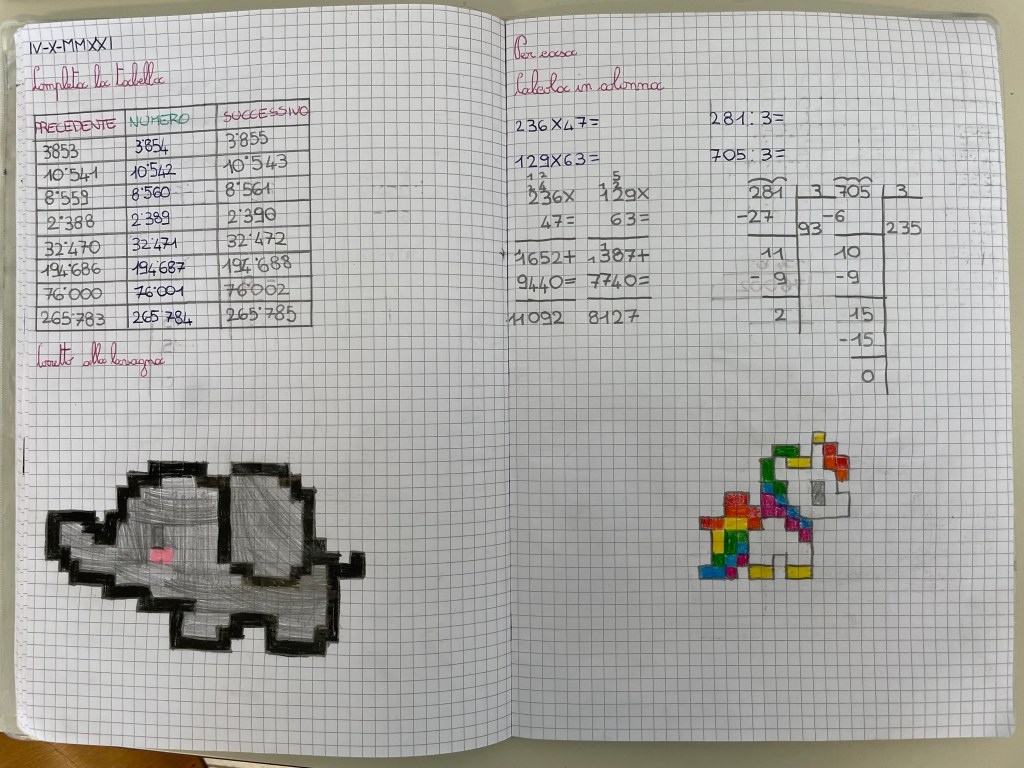 IV-X-MMXXI
Completa la tabella
PRECEDENTE NUMERO SUCCESSIVO
3853 3'854 3'855
10'541 10'542 10'543
8'559 8'560 8'561
2'388 2'389 2'390
32'470 32'471 32'472
194'686 194'687 194'688
76'000 76'001 76'002
265'783 265'784 265'785
Corretto alla lavagna
Per casa
Calcola in colonna
236X47= 281:3=
129X63= 705:3=
236X
47=
1652+
9440=
11092
129X
63=
387+
7740=
8127
281 3
-27 93
11
-9
2
705 3
-6 235
10
-9
15
-15
0